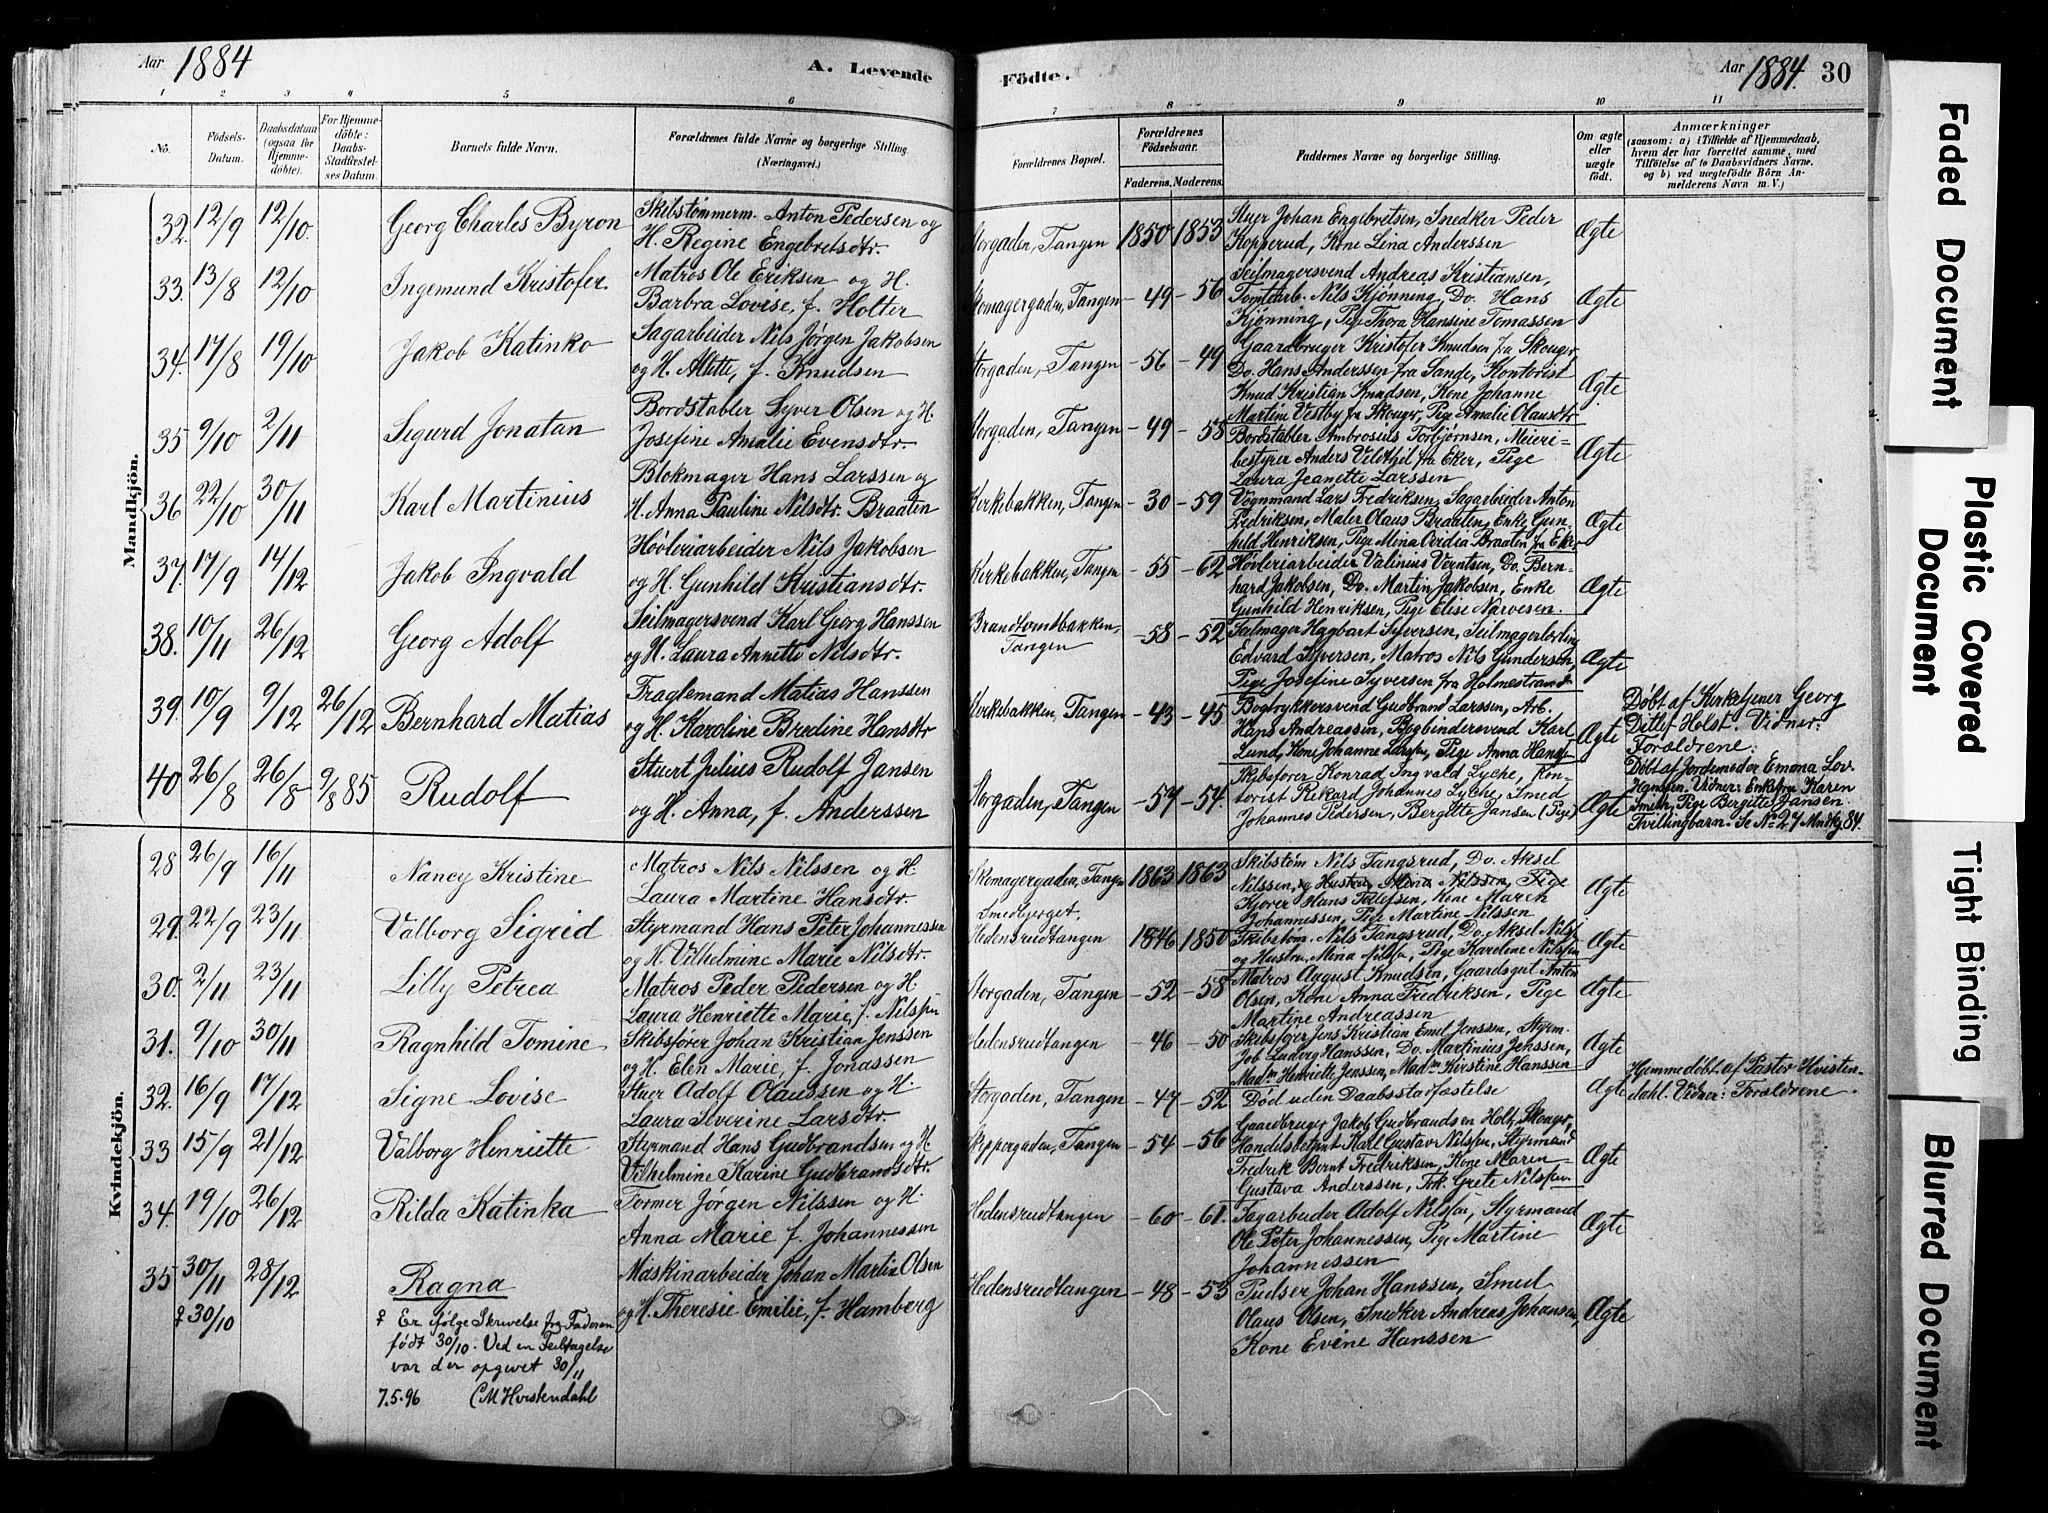 Aar 1884
A. Levende
Födte.
Aar 1884. 30
1 2 3 4 5 6 7 8 9 10 11
No.
Födsels-
Datum.
Daabsdatum
(ogsaa for
Hjemme-
döbte).
For Hjemme-
döbte:
Daabs-
Stadfæstel-
ses Datum.
Barnets fulde Navn.
Forældrenes fulde Navne og borgerlige Stilling.
(Næringsvei.)
Forældrenes Bopæl.
Forældrenes
Födselsaar.
Faderens. Moderens.
Faddernes Navne og borgerlige Stilling.
Om ægte
eller
uægte
födt.
Anmærkninger
(saasom: a) i Tilfælde af Hjemmedaab,
hvem der har forrettet samme, med
Tilföielse af to Daabsvidners Navne.
og b) ved uægtefödte Börn An-
melderens Navn m. V.)
Mandkjön.
32. 12/9 12/10. Georg Charles Byron
Skibstømmerm. Anton Pedersen og
H. Regine Engebretsdtr.
Storgaden, Tangen 1850 1853
Stuer Johan Engebretsen, Snedker Peder
Kopperud, Kone Lina Anderssen
Ægte
33. 13/8 12/10 Ingemund Kristofer
Matros Ole Eriksen og H.
Barbra Lovise, f. Holter
Skomagergaden, Tangen -49 -56
Seilmagersvend Andreas Kristiansen,
Tomtearb. Nils Kjønning, Do. Hans
Kjønning, Pige Thora Hansine Tomassen
Ægte
34. 17/8 19/10 Jakob Katinko
Sagarbeider Nils Jørgen Jakobsen
og H. Mette, f. Knudsen
Storgaden, Tangen -56 -49
Gaardbruger Kristofer Knudsen fra Skouger,
Do. Hans Anderssen fra Sande, Kontorist
Knud Kristian Knudsen, Kone Johanne
Martine Vestby fra Skouger, Pige Amalie Olausdtr
Ægte
35 9/10 2/11 Sigurd Jonatan
Bordstabler Syver Olsen og H.
Josefine Amalie Evensdtr.
Storgaden, Tangen -49 -58
Bordstabler Ambrosius Torbjørnsen, Meieri-
bestyrer Anders Vilethil fra Eker, Pige
Laura Jeanette Larssen
Ægte
36 22/10 30/11 Karl Martinius
Blokmager Hans Larssen og
H. Anna Pauline Nilsdtr. Braaten
Kirkebakken, Tangen -30 -59
Vognmand Lars Fredriksen, Sagarbeider Anton
Fredriksen, Maler Olaus Braaten, Enke Gun-
hild Henriksen, Pige Mina Braaten fra Eker
Ægte
37. 17/9 14/12 Jakob Ingvald
Høvleriarbeider Nils Jakobsen
og H. Gunhild Kristiansdtr.
Kirkebakken, Tangen -55 -62
Høvleriarbeider Valinius Berntsen, Do. Bern-
hard Jakobsen, Do. Martin Jakobsen, Enke
Gunhild Henriksen, Pige Elise Narvesen.
Ægte
38. 10/11 26/12 Georg Adolf
Seilmagersvend Karl Georg Hanssen
og H. Laura Annette Nilsdtr.
Brandtomtbakken,
Tangen -58 -52
Salmager Hagbart Syversen, Seilmagerlærling
Edvard Syversen, Matros Nils Gundersen,
Pige Josefine Syversen fra Holmestrand
Ægte
39. 10/9 9/12 26/12 Bernhard Matias
Fraglemand Matias Hanssen
og H. Karoline Bredine Hansdtr
Kirkebakken, Tangen -43 -45
Bogtrykkersvend Gudbrand Larssen, Arb.
Hans Andreassen, Bogbindersvend Karl
Lund, Kone Johanne Larssen, Pige Anna Hans
Ægte
Døbt af Kirketjener Georg
Ditlef Holst. Vidner:
Forældrene:
40 26/8 26/8 9/8 85 Rudolf
Stuert Julius Rudolf Jansen
og H. Anna, f. Anderssen
Storgaden, Tangen -57 -54.
Skibsfører Konrad Ingvald Lyche, Kon-
torist Rikard Johannes Lyche, Smed
Johannes Pedersen, Bergitte Jansen (Pige)
Ægte
Døbt af Jordemoder Emma Lov.
Hanssen. Vidner: Enkefru Karen
Smith, Pige Bergitte Jansen.
Tvillingbarn. Se No 27 Mndkj. 84.
Kvindekjön.
28 26/9 16/11 Nancy Kristine
Matros Nils Nilssen og H.
Laura Martine Hansdtr.
Skomagergaden, Tangen 1863 1863
Skibstøm Nils Tangsrud, Do. Aksel
Nilssen, og Hustru Mina Nilssen, Pige
Kjører Hans Tollefsen, Kone Maren
Johannessen, Pige Martine Nilssen
Ægte
29. 22/9 23/11 Valborg Sigrid
Styrmand Hans Peter Johannessen
og H. Vilhelmine Marie Nilsdtr.
Smedbjerget,
Hedensrudtangen 1846 1850
Skibstøm. Nils Tangsrud, Do. Aksel Nils
og Hustru, Mina Nilssen, Pige Karoline Nilssen
Ægte
30. 2/11 23/11 Lilly Petrea
Matros Peder Pedersen og H.
Laura Henriette Marie, f. Nilssen
Storgaden, Tangen -52 -58
Matros August Knudsen, Gaardsgut Anton
Olsen, Kone Anna Fredriksen, Pige
Martine Andreassen
Ægte
31. 9/10 30/11 Ragnhild Tomine
Skibsfører Johan Kristian Jenssen
og H. Elen Marie, f. Jonassen
Hedensrudtangen -46 -50
Skibsfører Jens Kristian Emil Jenssen, Styrm.
Job Ludvig Hanssen, Do. Martinius Jenssen,
Madm Henriette Jenssen, Madm Kirstine Hanssen
Ægte
32. 16/9 17/12 Signe Lovise
Stuer Adolf Olaussen og H.
Laura Severine Larsdtr.
Storgaden, Tangen -47 -52
Død uden Daabsstadfæstelse
Ægte
Hjemmedøbt af Pastor Hvisten-
dahl. Vidner: Forældrene.
33 15/9 21/12 Valborg Henriette
Styrmand Hans Gudbrandsen og H.
Vilhelmine Karine Gudbrandsdtr.
Skippergaden, Tangen -54 -56
Gaardbruger Jakob Gudbrandsen Holt, Skouger,
Handelsbetjent Karl Gustav Nilssen, Styrmand
Fredrik Bernt Fredriksen, Kone Maren
Gustava Anderssen, Frk. Grete Nilssen
Ægte
34. 19/10 26/12 Rilda Katinka
Former Jørgen Nilssen og H.
Anna Marie f. Johannessen
Hedensrudtangen -60 -61.
Sagarbeider Adolf Nilssen, Styrmand
Ole Peter Johannessen, Pige Martine
Johannessen
Ægte
35 30/11 28/12 Ragna
♀ 30/10
Maskinarbeider Johan Martin Olsen
og H. Theresie Emilie, f. Hamberg
Hedensrudtangen -48 -53
Pudser Johan Hanssen, Smed
Olaus Olsen, Snedker Andreas Johansen,
Kone Evine Hanssen
Ægte
♀ Er ifølge Skrivelse fra Faderen
født 30/10. Ved en Feiltagelse
var der opgivet 30/11
7.5.96 CM Hvistendahl
Faded Document
Plastic Covered
Document
Tight Binding
Blurred Document